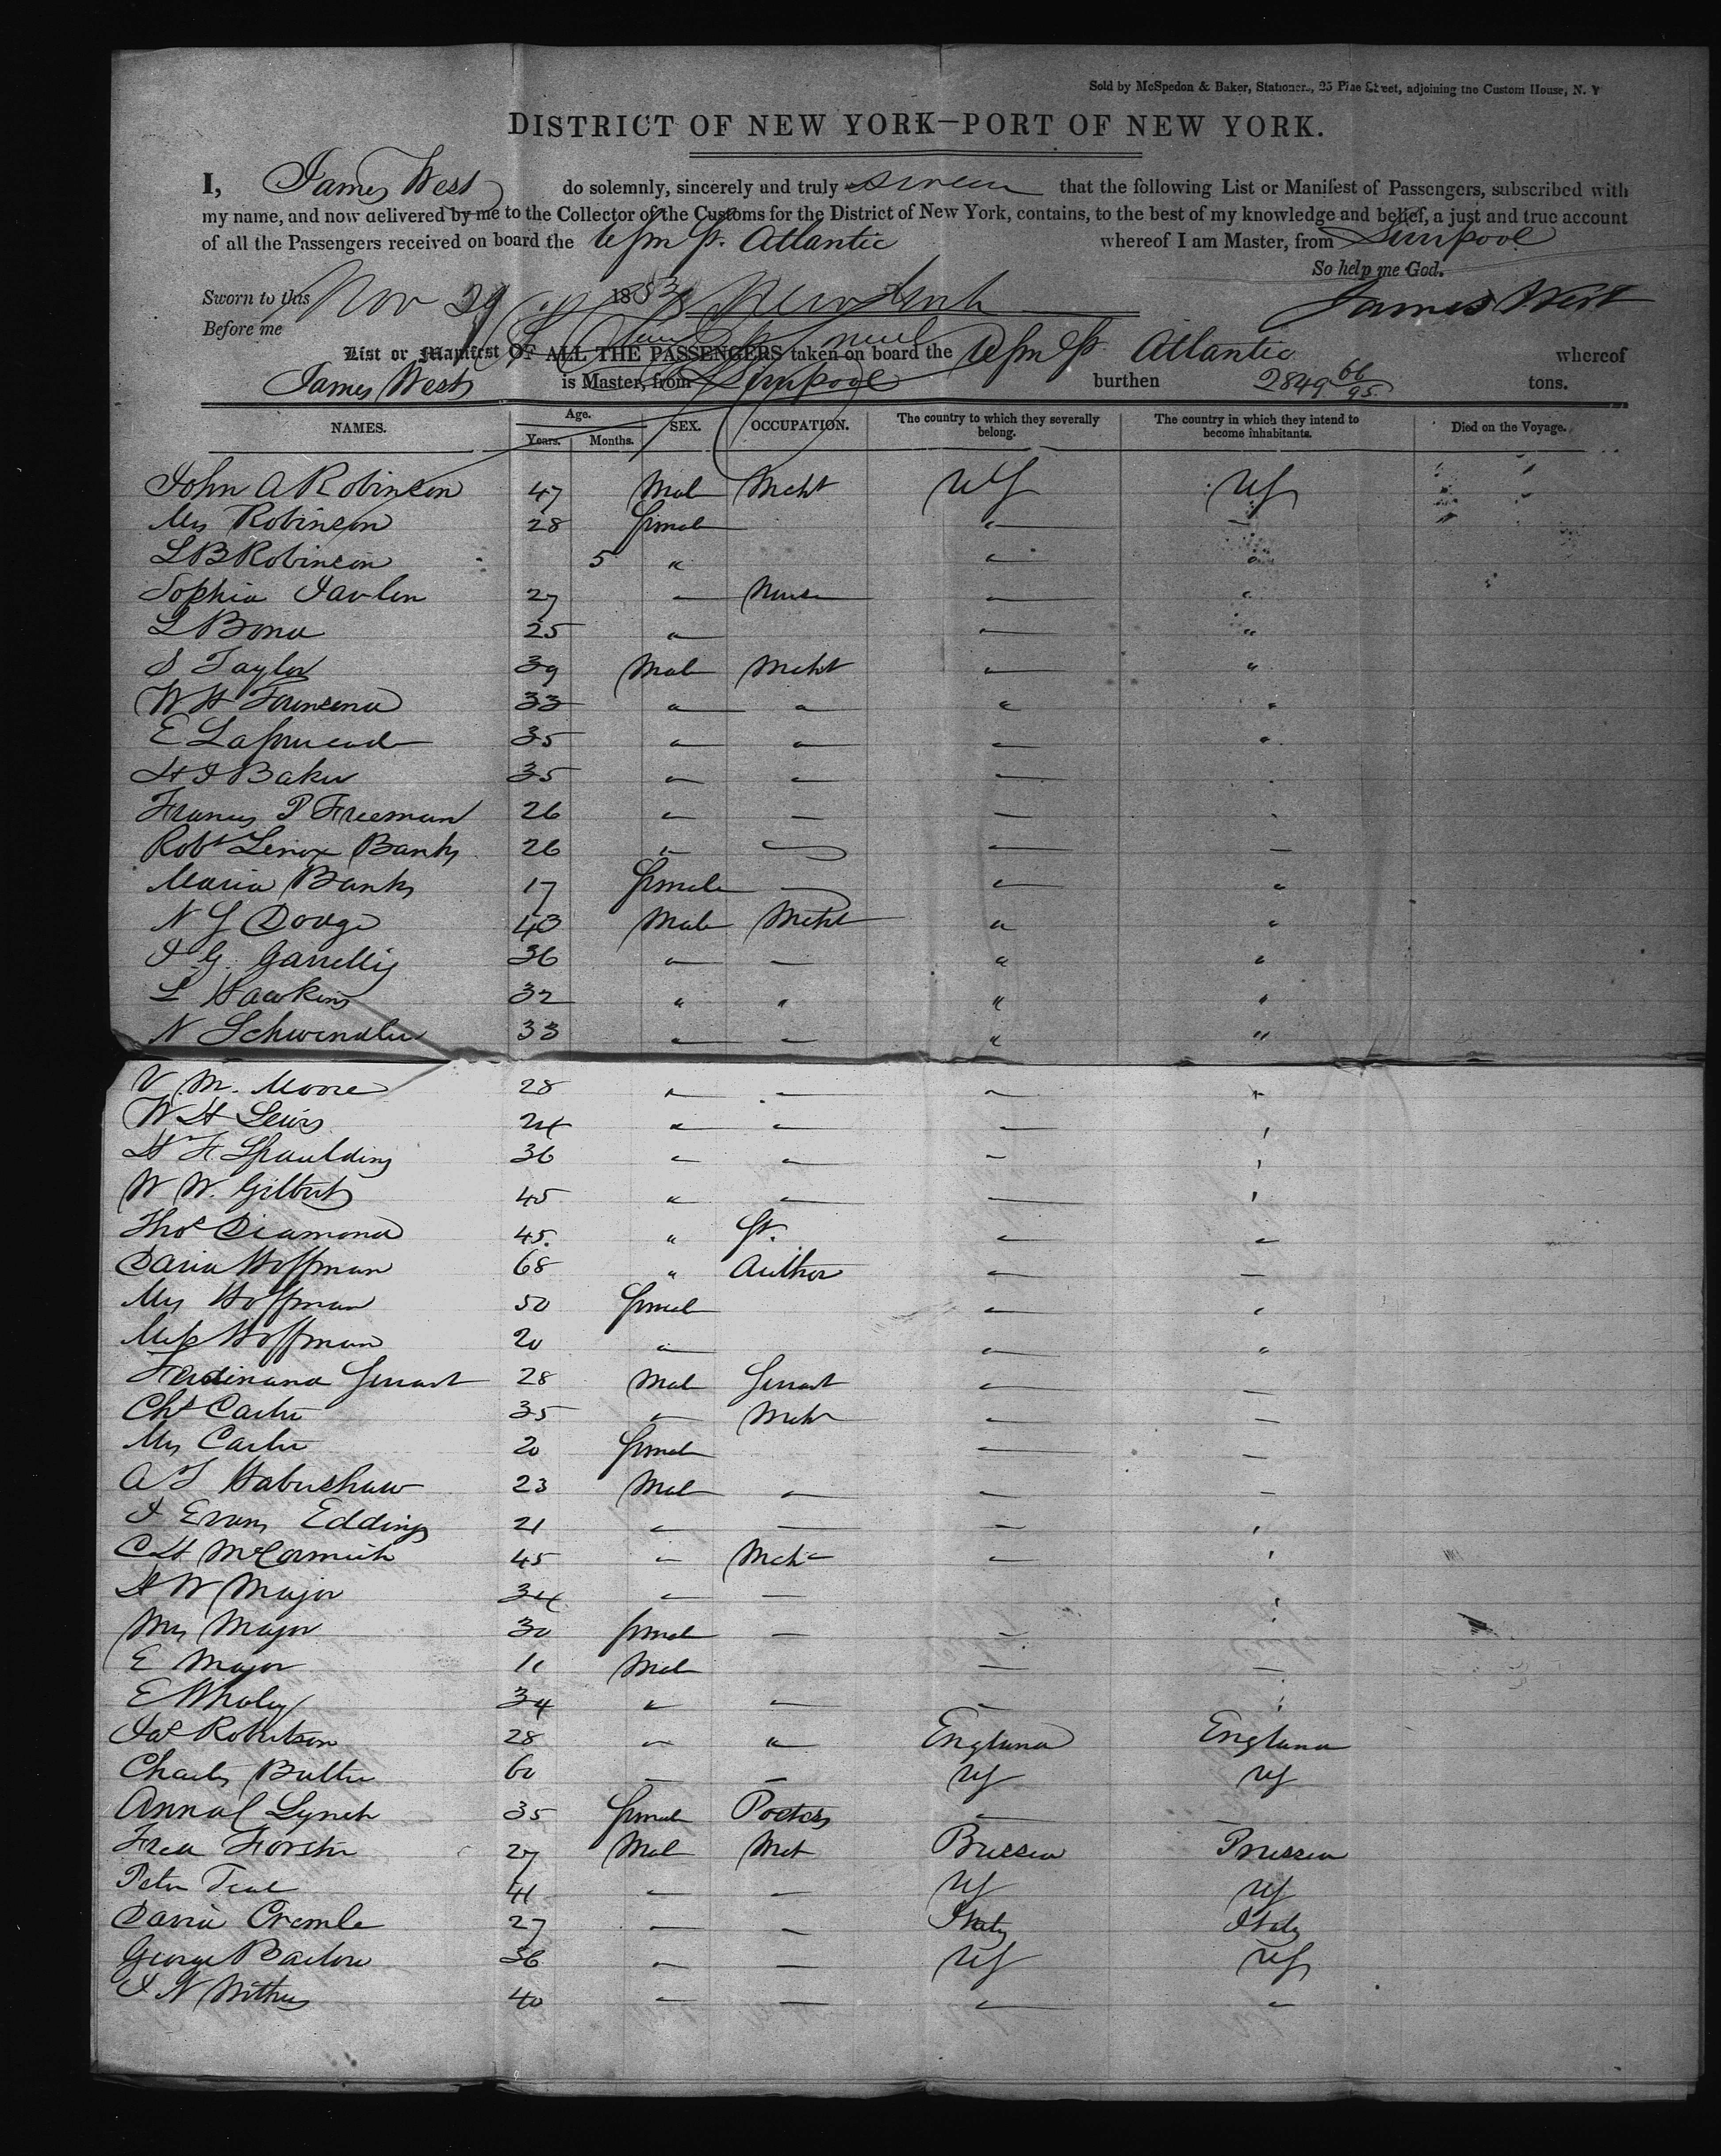 Sold by McSpedon & Baker, Stationers, 25 Pine Street, adjoining the Custom House, N. Y
DISTRICT OF NEW YORK—PORT OF NEW YORK.
I, James West do solemnly, sincerely and truly swear that the following List or Manifest of Passengers, subscribed with
my name, and now delivered by me to the Collector of the Customs for the District of New York, contains, to the best of my knowledge and belief, a just and true account
of all the Passengers received on board the USM St. Atlantic whereof I am Master, from Liverpool
So help me God.
Sworn to this Nov 29 1853 New York James West
Before me
List or Manifest OF ALL THE PASSENGERS taken on board the USM St. Atlantic whereof
James West is Master, from Liverpool burthen 2849 66/95 tons.
NAMES. Age. Years. Months. SEX. OCCUPATION. The country to which they severally belong. The country in which they intend to become inhabitants. Died on the Voyage.
John A Robinson 47 Male Mcht US US
Mrs Robinson 28 female " "
L B Robinson 5 " " "
Sophia 27 " Nurse " "
L Bond 25 " " "
S Taylor 39 Male Mcht " "
W H Townsend 33 " " " "
E 35 " " " "
H J Baker 35 " " " "
Francis P Freeman 26 " " " "
Robt Lenox Banks 26 " " "
Maria Banks 17 female " "
N G Dodge 43 Male Mcht " "
J. G. 36 " " " "
L Hawkins 32 " " " "
N Schwendler 33 " " " "
V. M. Moore 28 " " " "
W H Lewis 24 " " " "
H F. Spaulding 36 " " " "
W W. Gilbert 45 " " " "
Thos Diamond 45. " " "
David Hoffman 68 " Author " "
Mrs Hoffman 50 female " "
Miss Hoffman 20 " " "
Ferdinand Servant 28 Male Servant " "
Chs Carter 35 " Mcht " "
Mrs Carter 20 female " "
A T Habershaw 23 Male " " "
J Evans Eddings 21 " " " "
C H McCormick 45 " Mcht " "
H W Major 34 " " "
Mrs Major 30 female " " "
E Major 11 Male " "
E Whaley 34 " " " "
Jas Robertson 28 " " England England
Charles Butler 60 " " US US
Anna C Lynch 35 female Poetess "
Fred Forster 27 Male Mct Prussia Prussia
Peter Teal 41 " " US US
David 27 " " Italy Italy
George Barlow 36 " " US US
J N Withers 40 " " " "